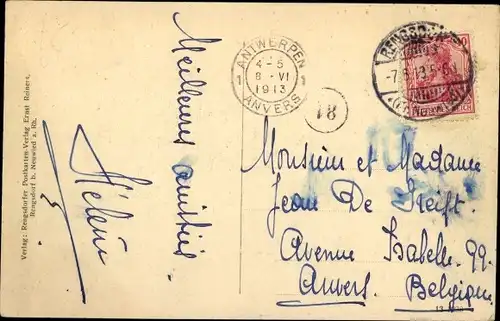 Verlag: Rengsdorfer Postkarten-Verlag Ernst Reiners,
Rengsdorf b. Neuwied a. Rh.
Meilleures amitiés.
ANTWERPEN
1 4-5 1
8-VI
1913
ANVERS
18
RENGSDORF
-7.6.13.5-6
REICH
Monsieur et Madame
Jean De
Avenue Isabelle. 99.
Anvers. Belgique